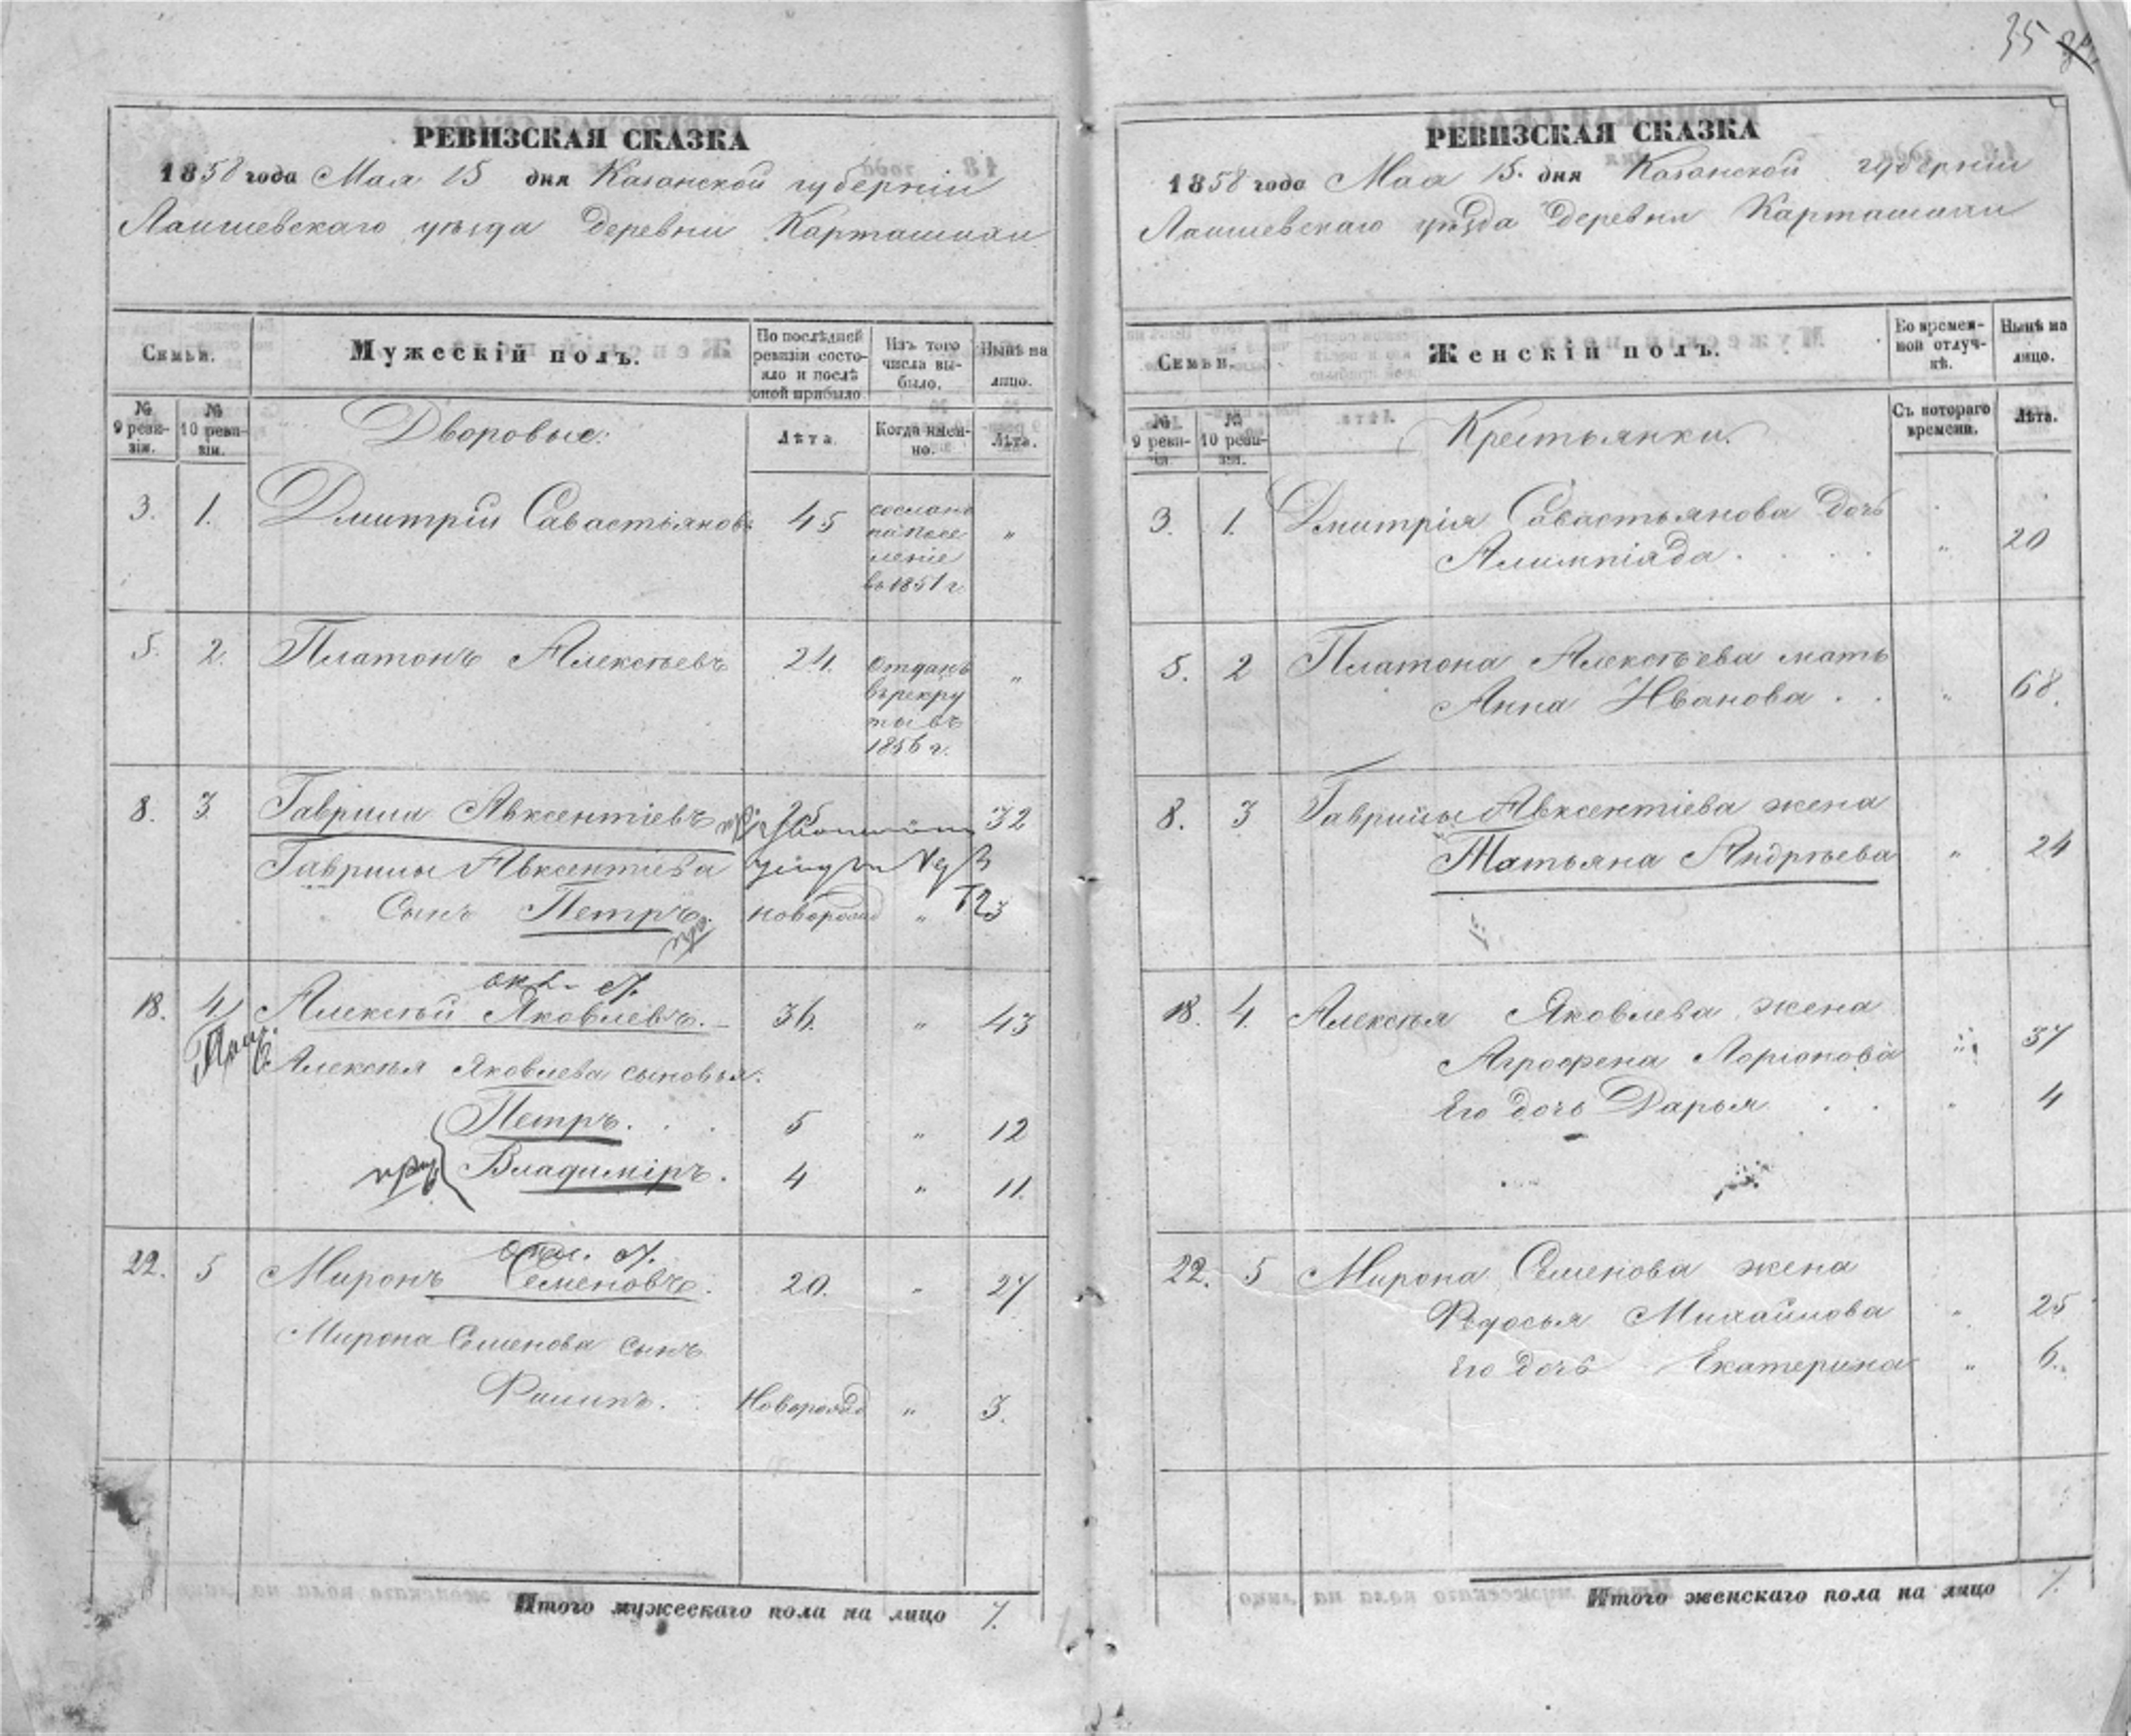 35
РЕВИЗСКАЯ СКАЗКА
1858 года Мая 15 дня Казанской губерніи
Лаишевскаго уѣзда деревни Карташихи
Семьи.
Мужескій полъ.
По послѣдней ревизіи состояло и послѣ оной прибыло
Изъ того числа выбыло.
Нынѣ на лицо.
№ 9 ревизіи.
№ 10 ревизіи.
Дворовые:
Лѣта.
Когда именно.
Лѣта.
3. 1. Дмитрій Савастьяновъ 45 сосланъ на посе
леніе
въ 1851 г. „
5. 2. Платонъ Алексѣевъ 24. Отданъ
въ рекру
ты въ
1856 г. „
8. 3 Гаврила Авксентіевъ 25 32
Гаврилы Авксентіева
Сынъ Петръ. новорожд „ 3
18. 4 Алексѣй Яковлевъ. 36. „ 43
Алексѣя Яковлева сыновья:
Петръ. . . 5 „ 12
Владиміръ. 4 „ 11.
22. 5 Миронъ Семеновъ. 20. „ 27
Мирона Семенова сынъ
Филипъ. Новорожд „ 3.
Итого мужескаго пола на лицо 7.
РЕВИЗСКАЯ СКАЗКА
1858 года Мая 15. дня Казанской губерніи
Лаишевскаго уѣзда деревни Карташихи
Семьи.
Женскій полъ.
Во временной отлучкѣ.
Нынѣ на лицо.
№ 9 ревизіи.
№ 10 ревизіи.
Крестьянки.
Съ котораго времени.
Лѣта.
3. 1. Дмитрія Савастьянова дочь
Алимпіяда . . . . „ 20
5. 2 Платона Алексѣева мать
Анна Иванова . . „ 68.
8. 3 Гаврилы Авксентіева жена
Татьяна Андрѣева „ 24
18. 4. Алексѣя Яковлева жена
Агрофена Ларіонова „ 37
Его дочь Дарья . . „ 4
22. 5 Мирона Семенова жена
Ѳедосья Михайлова „ 25
Его дочь Екатерина „ 6.
Итого женскаго пола на лицо 7.